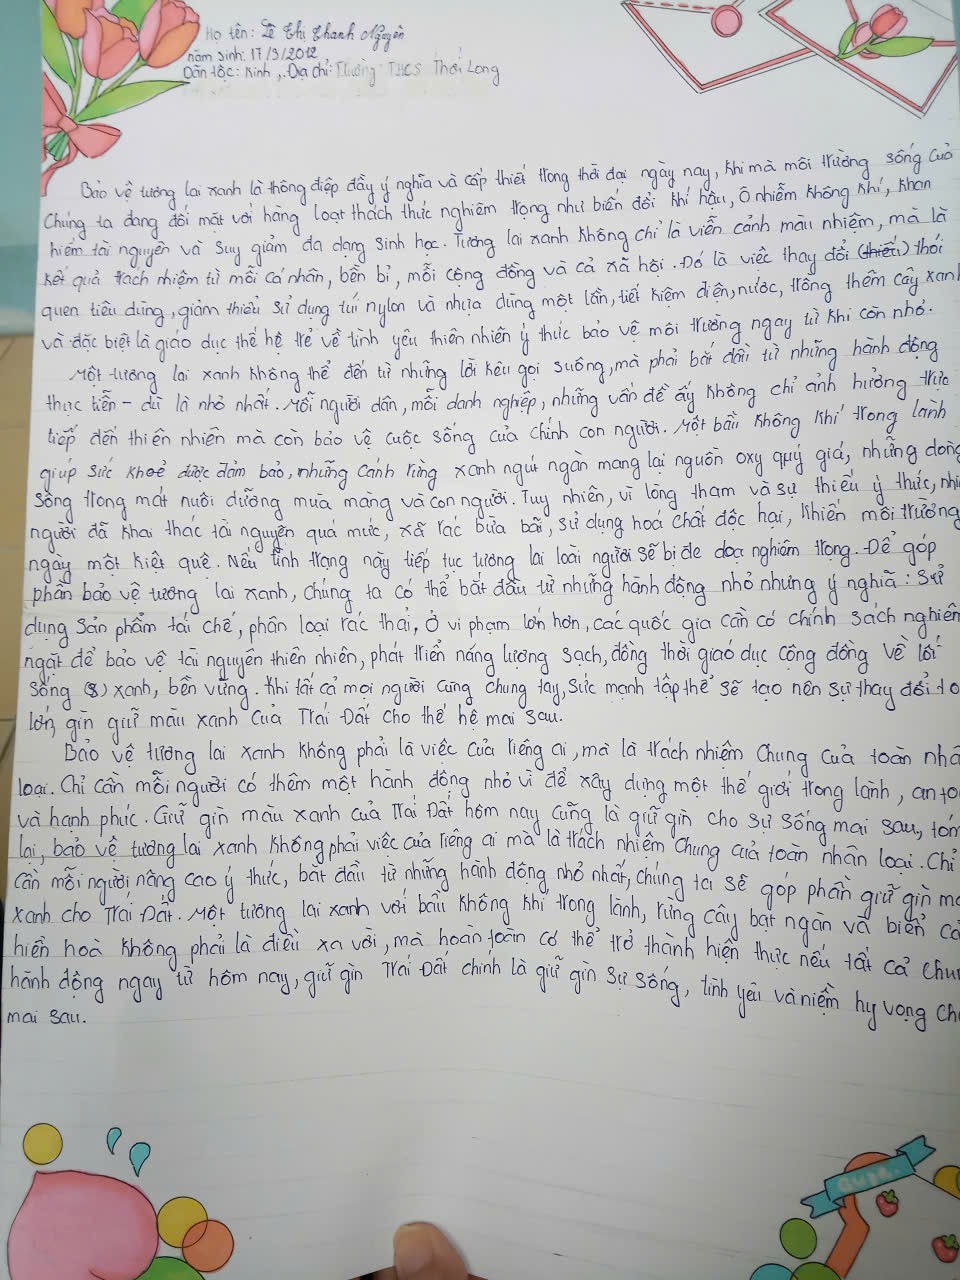 Họ tên: Lê Thị Thanh Nguyên
năm sinh: 17/3/2012
Dân tộc: Kinh, Địa chỉ: Trường THCS Thới Long
Bảo vệ tương lai xanh là thông điệp đầy ý nghĩa và cấp thiết trong thời đại ngày nay, khi mà môi trường sống của
Chúng ta đang đối mặt với hàng loạt thách thức nghiêm trọng như biến đổi khí hậu, Ô nhiễm không khí, khan
hiếm tài nguyên và suy giảm đa dạng sinh học. Tương lai xanh không chỉ là viễn cảnh màu nhiệm, mà là
kết quả trách nhiệm từ mỗi cá nhân, bền bỉ, mỗi cộng đồng và cả xã hội. Đó là việc thay đổi (thiếu) thói
quen tiêu dùng, giảm thiểu sử dụng túi nylon và nhựa dùng một lần, tiết kiệm điện, nước, trồng thêm cây xanh
và đặc biệt là giáo dục thế hệ trẻ về tình yêu thiên nhiên ý thức bảo vệ môi trường ngay từ khi còn nhỏ.
Một tương lai xanh không thể đến từ những lời kêu gọi suông, mà phải bắt đầu từ những hành động
thực tiễn - dù là nhỏ nhất. Mỗi người dân, mỗi danh nghiệp, những vấn đề ấy không chỉ ảnh hưởng trực
tiếp đến thiên nhiên mà còn bảo vệ cuộc sống của chính con người. Một bầu không khí trong lành
giúp sức khoẻ được đảm bảo, những cánh rừng xanh ngút ngàn mang lại nguồn oxy quý giá, những dòng
sông trong mát nuôi dưỡng mùa màng và con người. Tuy nhiên, vì lòng tham và sự thiếu ý thức,
người đã khai thác tài nguyên quá mức, xả rác bừa bãi, sử dụng hoá chất độc hại, khiến môi trường
ngày một kiệt quệ. Nếu tình trạng này tiếp tục tương lai loài người sẽ bị đe doạ nghiêm trọng. Để góp
phần bảo vệ tương lai xanh, chúng ta có thể bắt đầu từ những hành động nhỏ nhưng ý nghĩa: Sử
dụng sản phẩm tái chế, phân loại rác thải, Ở vi phạm lớn hơn, các quốc gia cần có chính sách nghiêm
ngặt để bảo vệ tài nguyên thiên nhiên, phát triển năng lượng sạch, đồng thời giáo dục cộng đồng về lối
sống (s) xanh, bền vững. Khi tất cả mọi người cùng chung tay, sức mạnh tập thể sẽ tạo nên sự thay đổi to
lớn, gìn giữ màu xanh của Trái Đất cho thế hệ mai sau.
Bảo vệ tương lai xanh không phải là việc của riêng ai, mà là trách nhiệm chung của toàn nhâ
loại. Chỉ cần mỗi người có thêm một hành động nhỏ vì để xây dựng một thế giới trong lành, an to
và hạnh phúc. Giữ gìn màu xanh của Trái Đất hôm nay cũng là giữ gìn cho sự sống mai sau, tóm
lại, bảo vệ tương lai xanh không phải việc của riêng ai mà là trách nhiệm chung của toàn nhân loại. Chỉ
Cần mỗi người nâng cao ý thức, bắt đầu từ những hành động nhỏ nhất, chúng ta sẽ góp phần giữ gìn mà
xanh cho Trái Đất. Một tương lai xanh với bầu không khí trong lành, rừng cây bạt ngàn và biển cả
hiền hoà không phải là điều xa vời, mà hoàn toàn có thể trở thành hiện thực nếu tất cả chún
hành động ngay từ hôm nay, giữ gìn Trái Đất chính là giữ gìn sự sống, tình yêu và niềm hy vọng ch
mai sau.